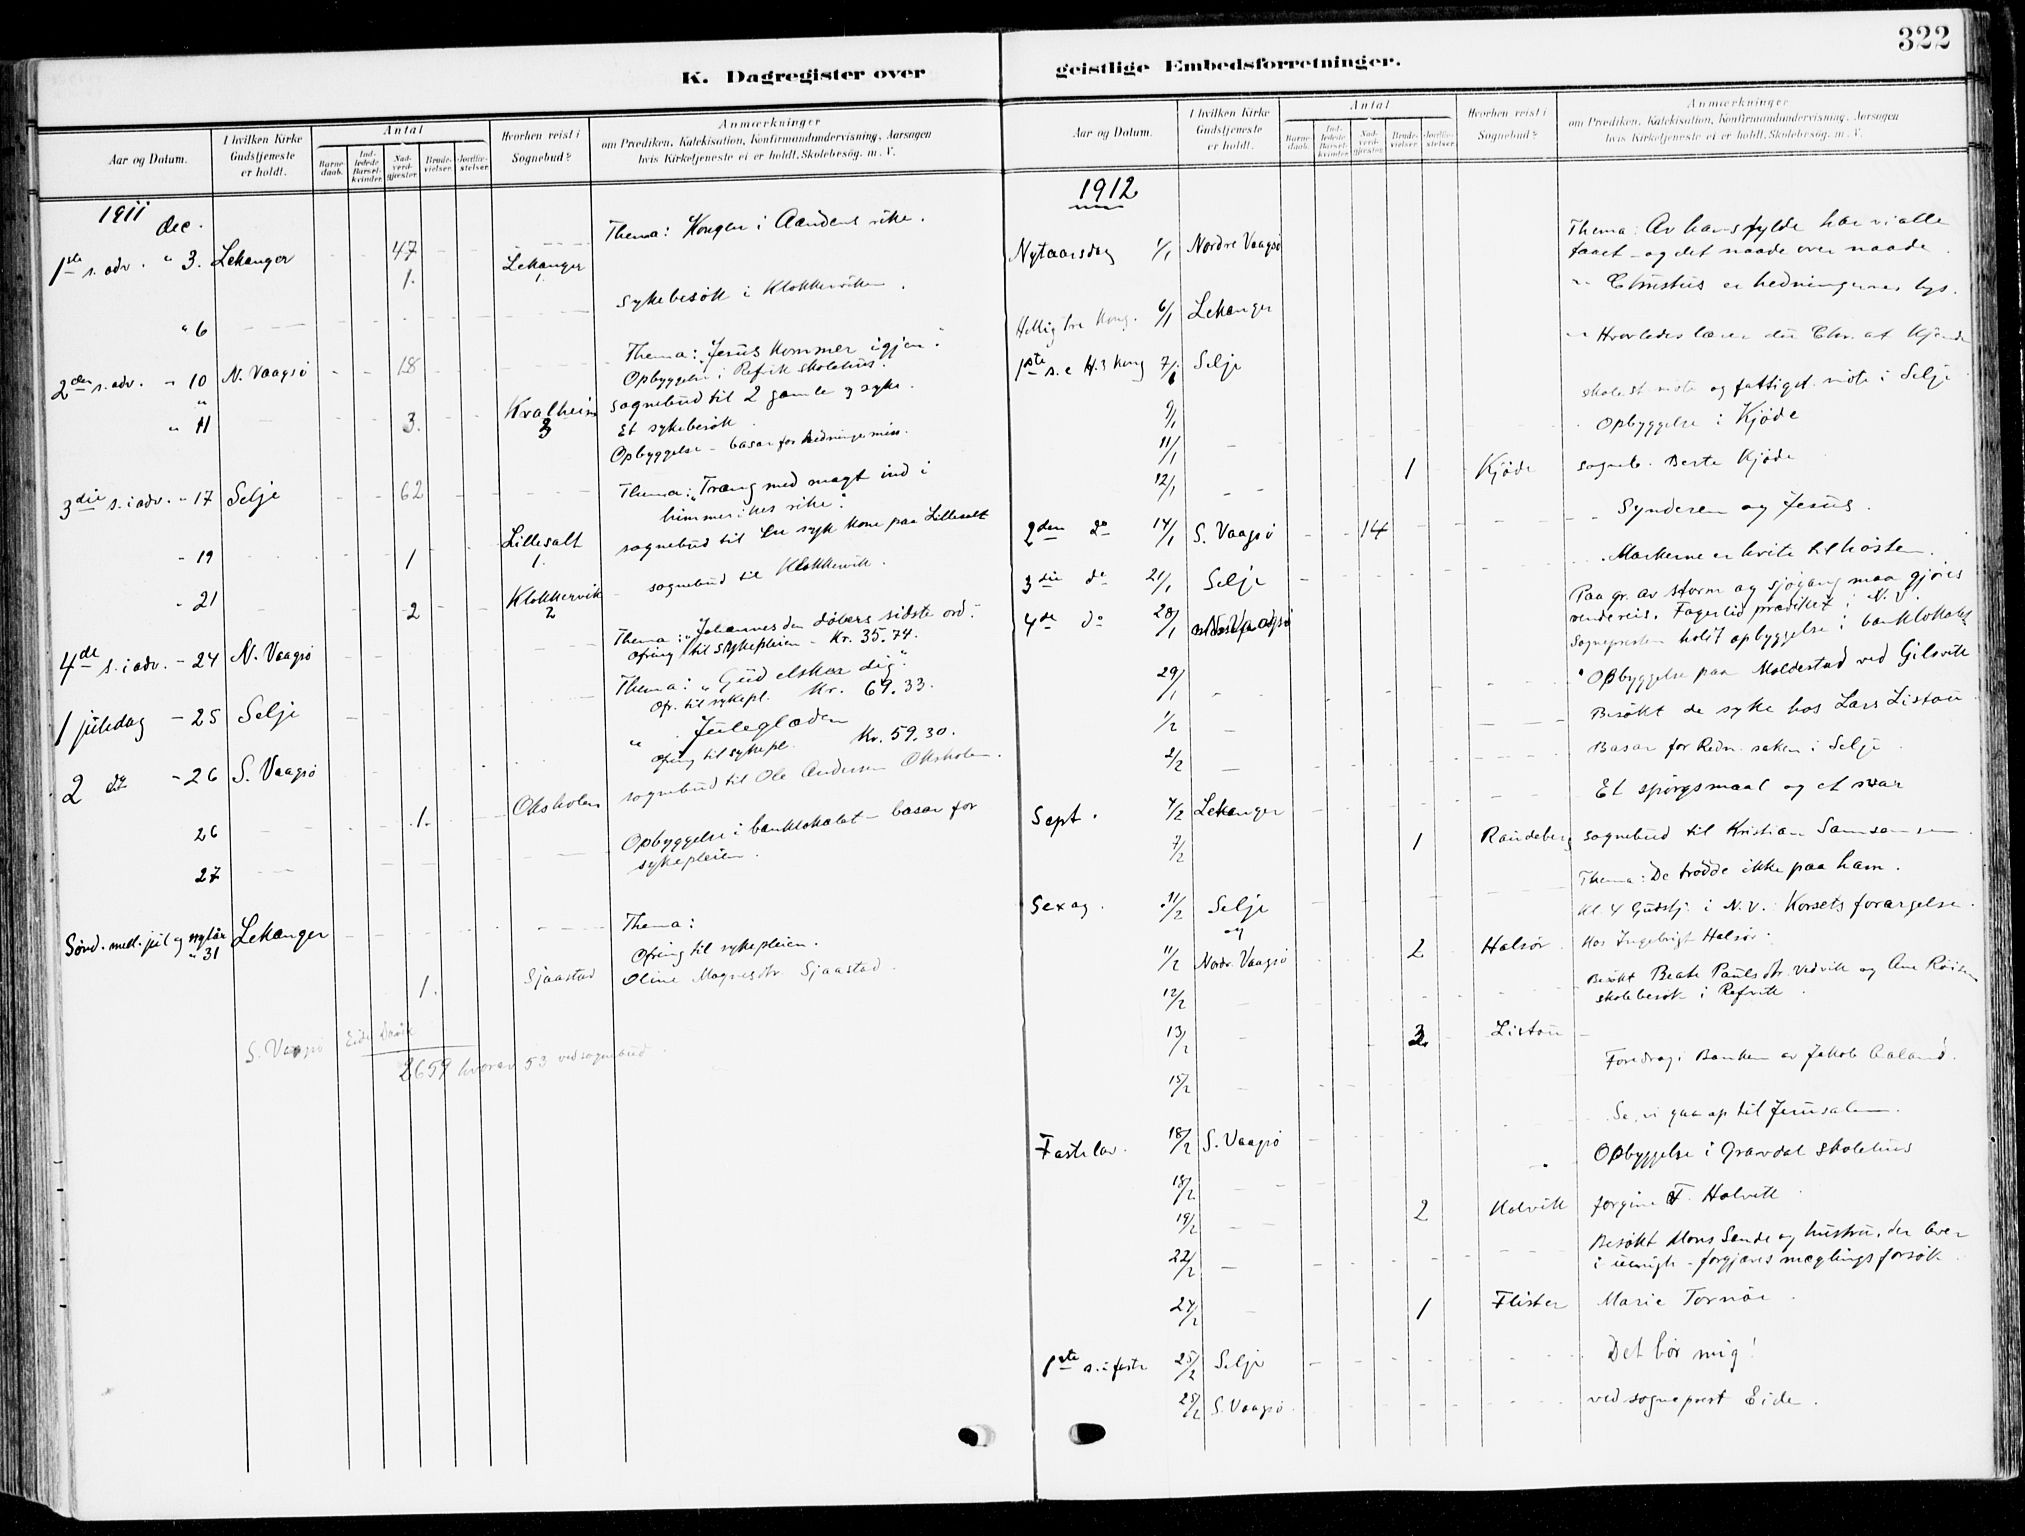 322
K. Dagregister over geistlige Embedsforretninger.
Aar og Datum.
I hvilken Kirke Gudstjeneste er holdt.
Antal
Barnedaab.
Indledede Barselkvinder.
Nadverdgjæster.
Brudevielser.
Jordfæstelser.
Hvorhen reist i Sognebud?
Anmærkninger
om Prædiken, Katekisation, Konfirmandundervisning, Aarsagen
hvis Kirketjeneste ei er holdt, Skolebesøg. m. V.
1911
dec.
1ste s. adv. " 3. Lekanger 47 Thema: Kongen i Aandens rike.
1. Lekanger 1.
" 6 Sykebesøk i Klokkerviken.
2den s. adv. " 10 N. Vaagsø 18 Thema: "Jesus kommer igjen."
Opbyggelse i Refvik skolehus.
" 11 3. Kvalheim 3 sognebud til 2 gamle og syke.
Et sykebesøk.
Opbyggelse - basar for hedningemiss.
3die s. i adv. " 17 Selje 62 Thema: "Træng med magt ind i
himmerikes rike."
" 19 1 Lillesalt 1. sognebud til en syk kone paa Lillesalt
" 21 2 Klokkervik 2 sognebud til Klokkervik.
4de s. i adv. " 24 N. Vaagsø Thema: "Johannes den døbers sidste ord."
Ofring til sykepleien - Kr. 35.74.
1 juledag " 25 Selje Thema: "Gud elsker dig."
Ofr. til sykepl. Kr. 69.33.
2 do " 26 S. Vaagsø " Juleglæden
Ofring til sykepl. Kr. 59.30.
26 1. Oksholen sognebud til Ole Andersen Oksholen.
27 Opbyggelse i banklokalet - basar for
sykepleien.
Sønd. mel. jul og nytår " 31 Lekanger Thema:
Ofring til sykepleien.
1. Sjaastad Oline Magnesdtr. Sjaastad.
S. Vaagsø Eide
2659 hvorav 53 ved sognebud.
Aar og Datum.
I hvilken Kirke Gudstjeneste er holdt.
Antal
Barnedaab.
Indledede Barselkvinder.
Nadverdgjæster.
Brudevielser.
Jordfæstelser.
Hvorhen reist i Sognebud?
Anmærkninger
om Prædiken, Katekisation, Konfirmandundervisning, Aarsagen
hvis Kirketjeneste ei er holdt, Skolebesøg. m. V.
1912
Nytaarsdag 1/1 Nordre Vaagsø Thema: Av hans fylde har vi alle
faaet - og det naade over naade.
Hellig tre Kong. 6/1 Lekanger " Christus er hedningernes lys.
1ste s. e H. 3 Kong 7/1 Selje " Hvorledes lærer du Chr. at kjende
9/1 skolest. møte og fattigst. møte i Selje
11/1 Opbyggelse i Kjøde
12/1 1 Kjøde sogneb. Berte Kjøde
2den do 14/1 S. Vaagsø 14 Synderen og Jesus.
3die do 21/1 Selje Markerne er hvite til høsten.
4de do 28/1 N. Vaagsø Paa gr. av storm og sjøgang maa gjøres
vendereis. Fagerlid prædiket i N. V.
Sognepresten holdt opbyggelse i banklokalet
29/1 Opbyggelse paa Moldestad ved Gilsvik
1/2 Besøkt de syke hos Lars Listou
2/2 Basar for Redn. saken i Selje
Sept. 4/2 Lekanger Et spørgsmaal og et svar
7/2 1 Raudeberg sognebud til Kristian Samson
Sexag. 11/2 Selje Thema: De trodde ikke paa ham.
og
11/2 Nordr. Vaagsø Kl. 4 Gudstj. i N. V. Korsets forargelse.
12/2 2 Halsør. Hos Ingebrigt Halsør.
Besøkt Beate Paulsdtr. Vedvik og Ane
skolebesøk i Refvik.
13/2 3. Listou
15/2 Foredrag i Banken av Jakob Aaland.
Fastelav. 18/2 S. Vaagsø Se, vi gaa op til Jerusalem.
18/2 Opbyggelse i Gravdal skolehus
19/2 2 Holvik F. Holvik
22/2 Besøkt Mons Sande og hustru, der lever
i uenigh. - forgjæves mæglingsforsøk
24/2 1 Flister Marie Tornøe.
1ste s. i faste 25/2 Selje Det bør mig!
25/2 S. Vaagsø. ved sogneprest Eide.